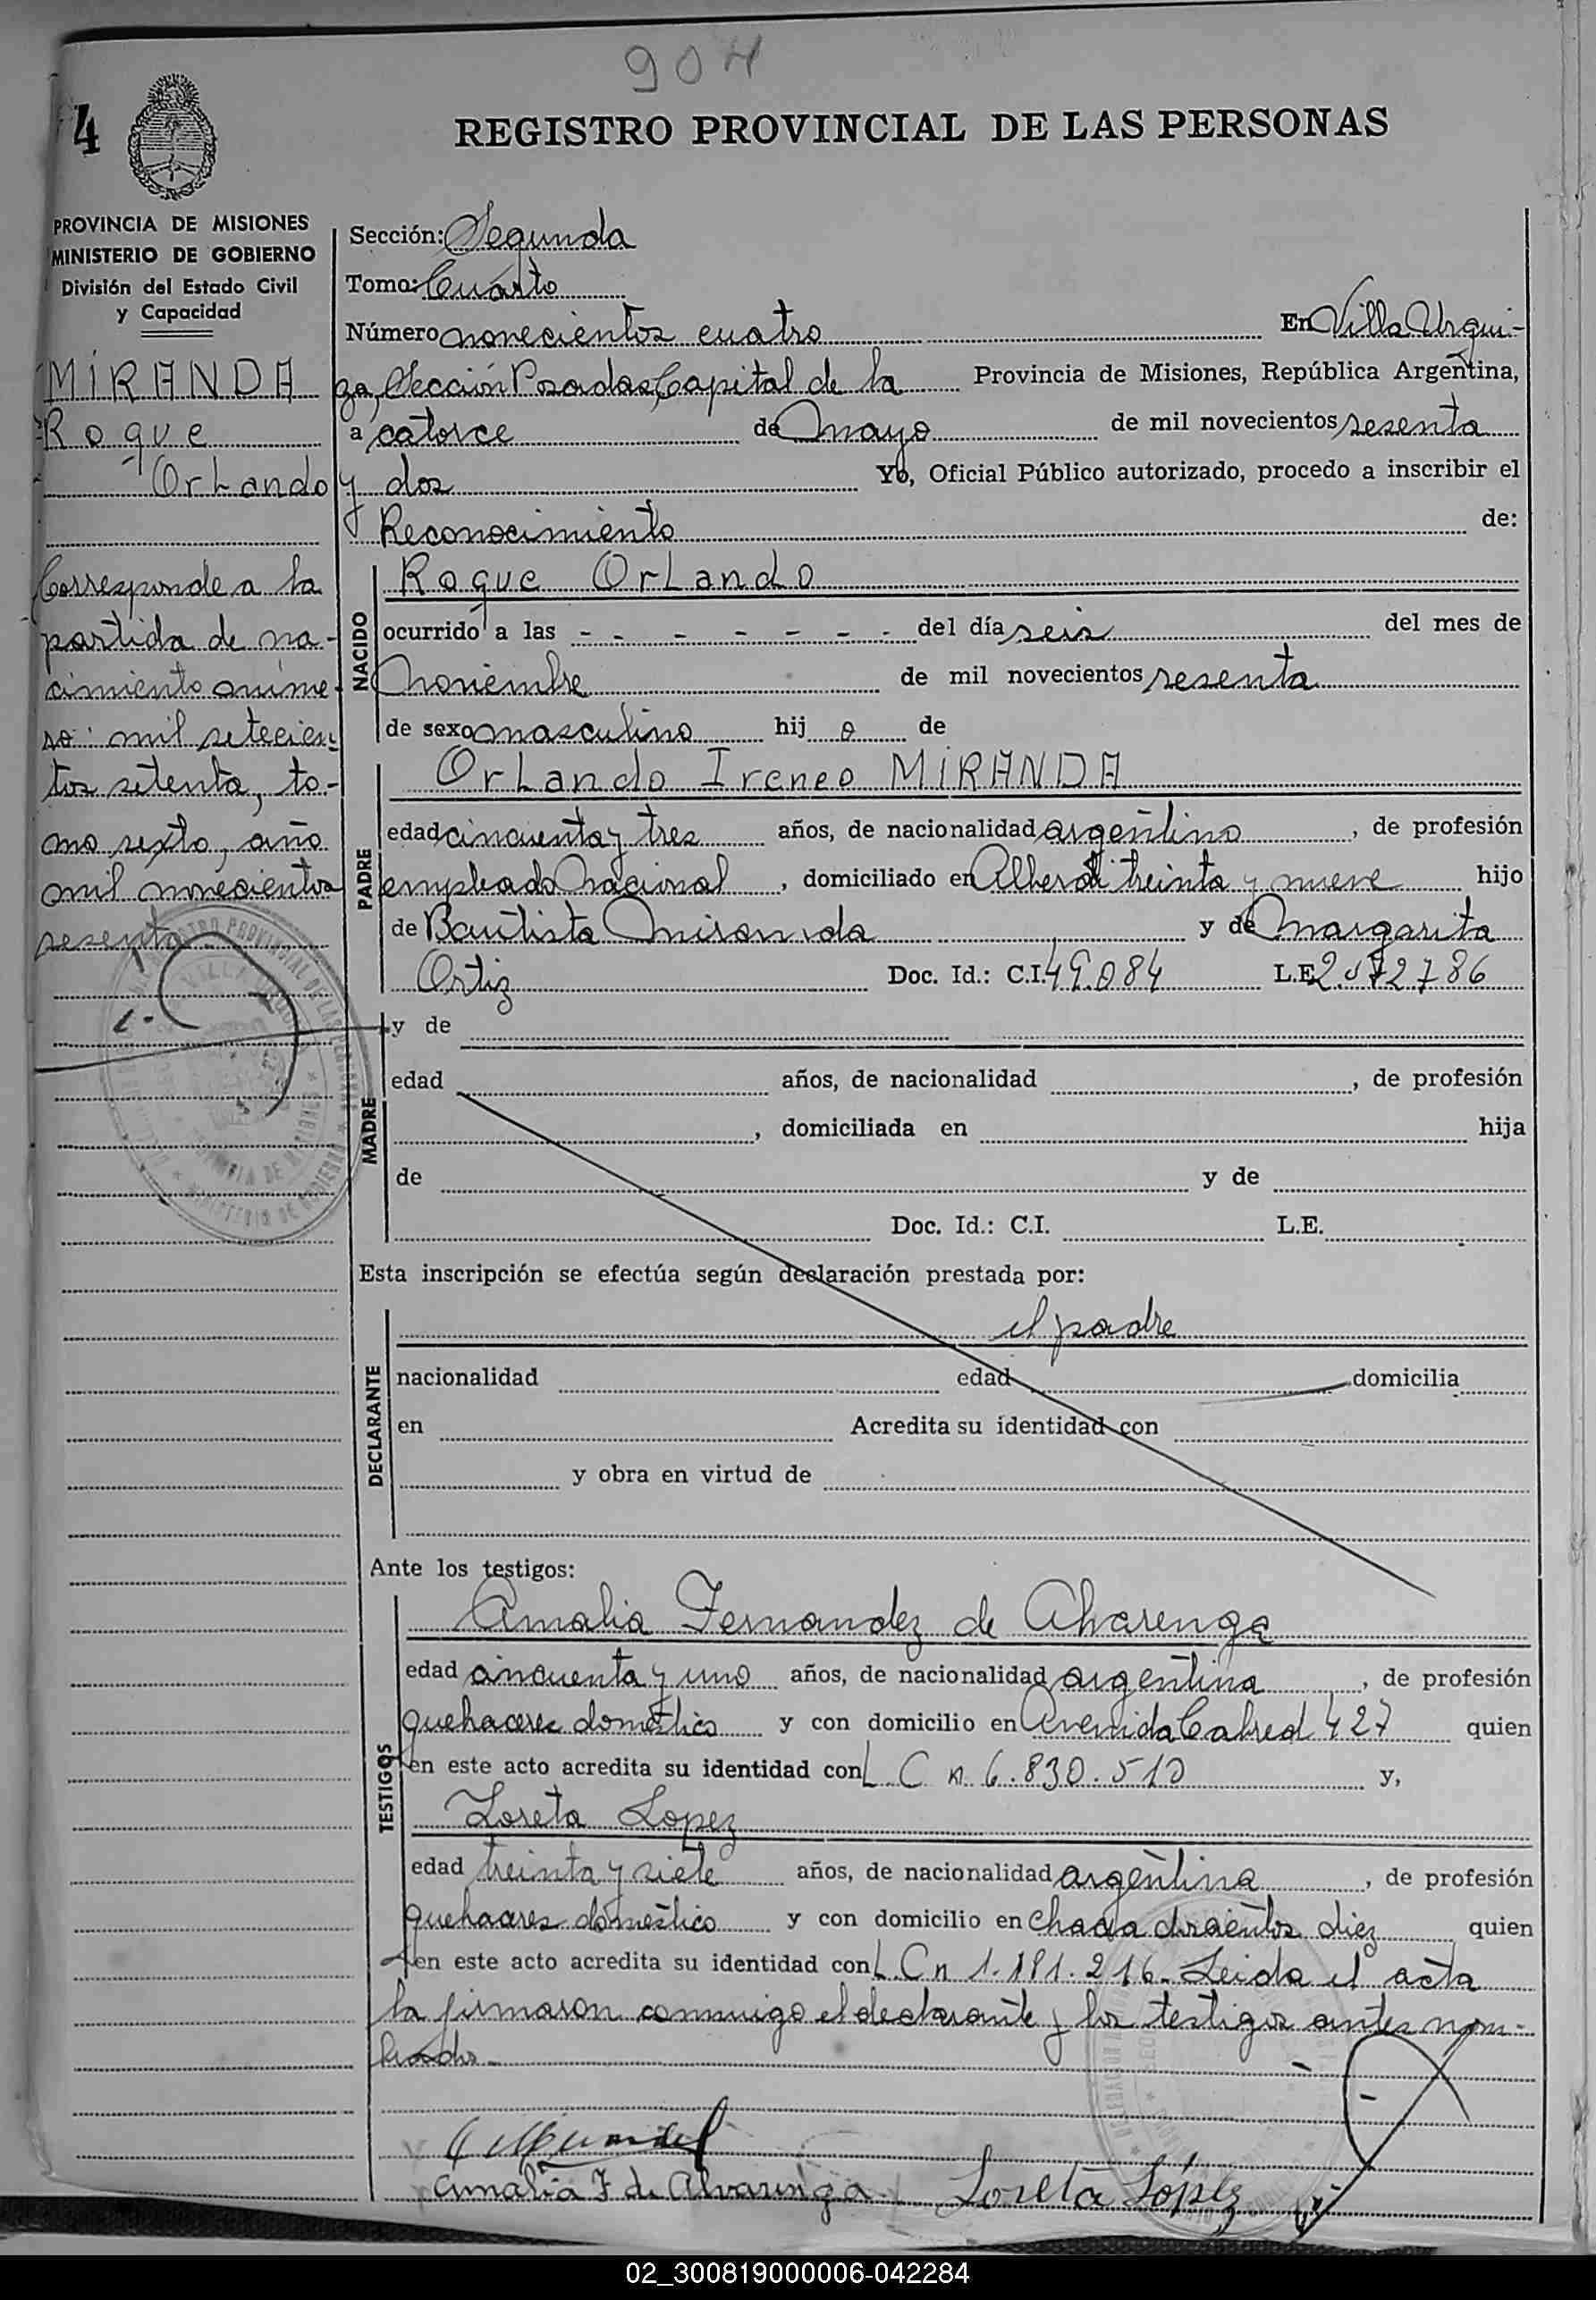 904
4
REGISTRO PROVINCIAL DE LAS PERSONAS
PROVINCIA DE MISIONES
MINISTERIO DE GOBIERNO
División del Estado Civil
y Capacidad
MIRANDA
Roque
Orlando
Corresponde a la
partida de na-
cimiento núme-
ro mil setecien-
tos setenta, to-
mo sexto, año
mil novecientos
sesenta
Sección: Segunda
Tomo: Cuarto
Número novecientos cuatro En Villa Urqui-
za, Sección Posadas, Capital de la Provincia de Misiones, República Argentina,
a catorce de mayo de mil novecientos sesenta
y dos Yo, Oficial Público autorizado, procedo a inscribir el
Reconocimiento de:
NACIDO
Roque Orlando
ocurrido a las - - - - - - - del día seis del mes de
noviembre de mil novecientos sesenta
de sexo masculino hij o de
PADRE
Orlando Ireneo MIRANDA
edad cincuenta y tres años, de nacionalidad argentino, de profesión
empleado nacional, domiciliado en Alberdi treinta y nueve hijo
de Bautista Miranda y de Margarita
Ortiz Doc. Id.: C.I. 49.084 L.E. 2.072.786
MADRE
y de
edad años, de nacionalidad , de profesión
, domiciliada en hija
de y de
Doc. Id.: C.I. L.E.
Esta inscripción se efectúa según declaración prestada por:
DECLARANTE
el padre
nacionalidad edad domicilia
en Acredita su identidad con
y obra en virtud de
Ante los testigos:
TESTIGOS
Amalia Fernandez de Alvarenga
edad cincuenta y uno años, de nacionalidad argentina, de profesión
quehaceres domestico y con domicilio en Avenida Cabred 427 quien
en este acto acredita su identidad con L C n 6.830.510 y,
Loreta Lopez
edad treinta y siete años, de nacionalidad argentina, de profesión
quehaceres domestico y con domicilio en chacra doscientos diez quien
en este acto acredita su identidad con L C n 1.181.216. Leida el acta
la firmaron conmigo el declarante y los testigos antes nom-
brados.
Amalia F de Alvarenga Loreta López
02_300819000006-042284